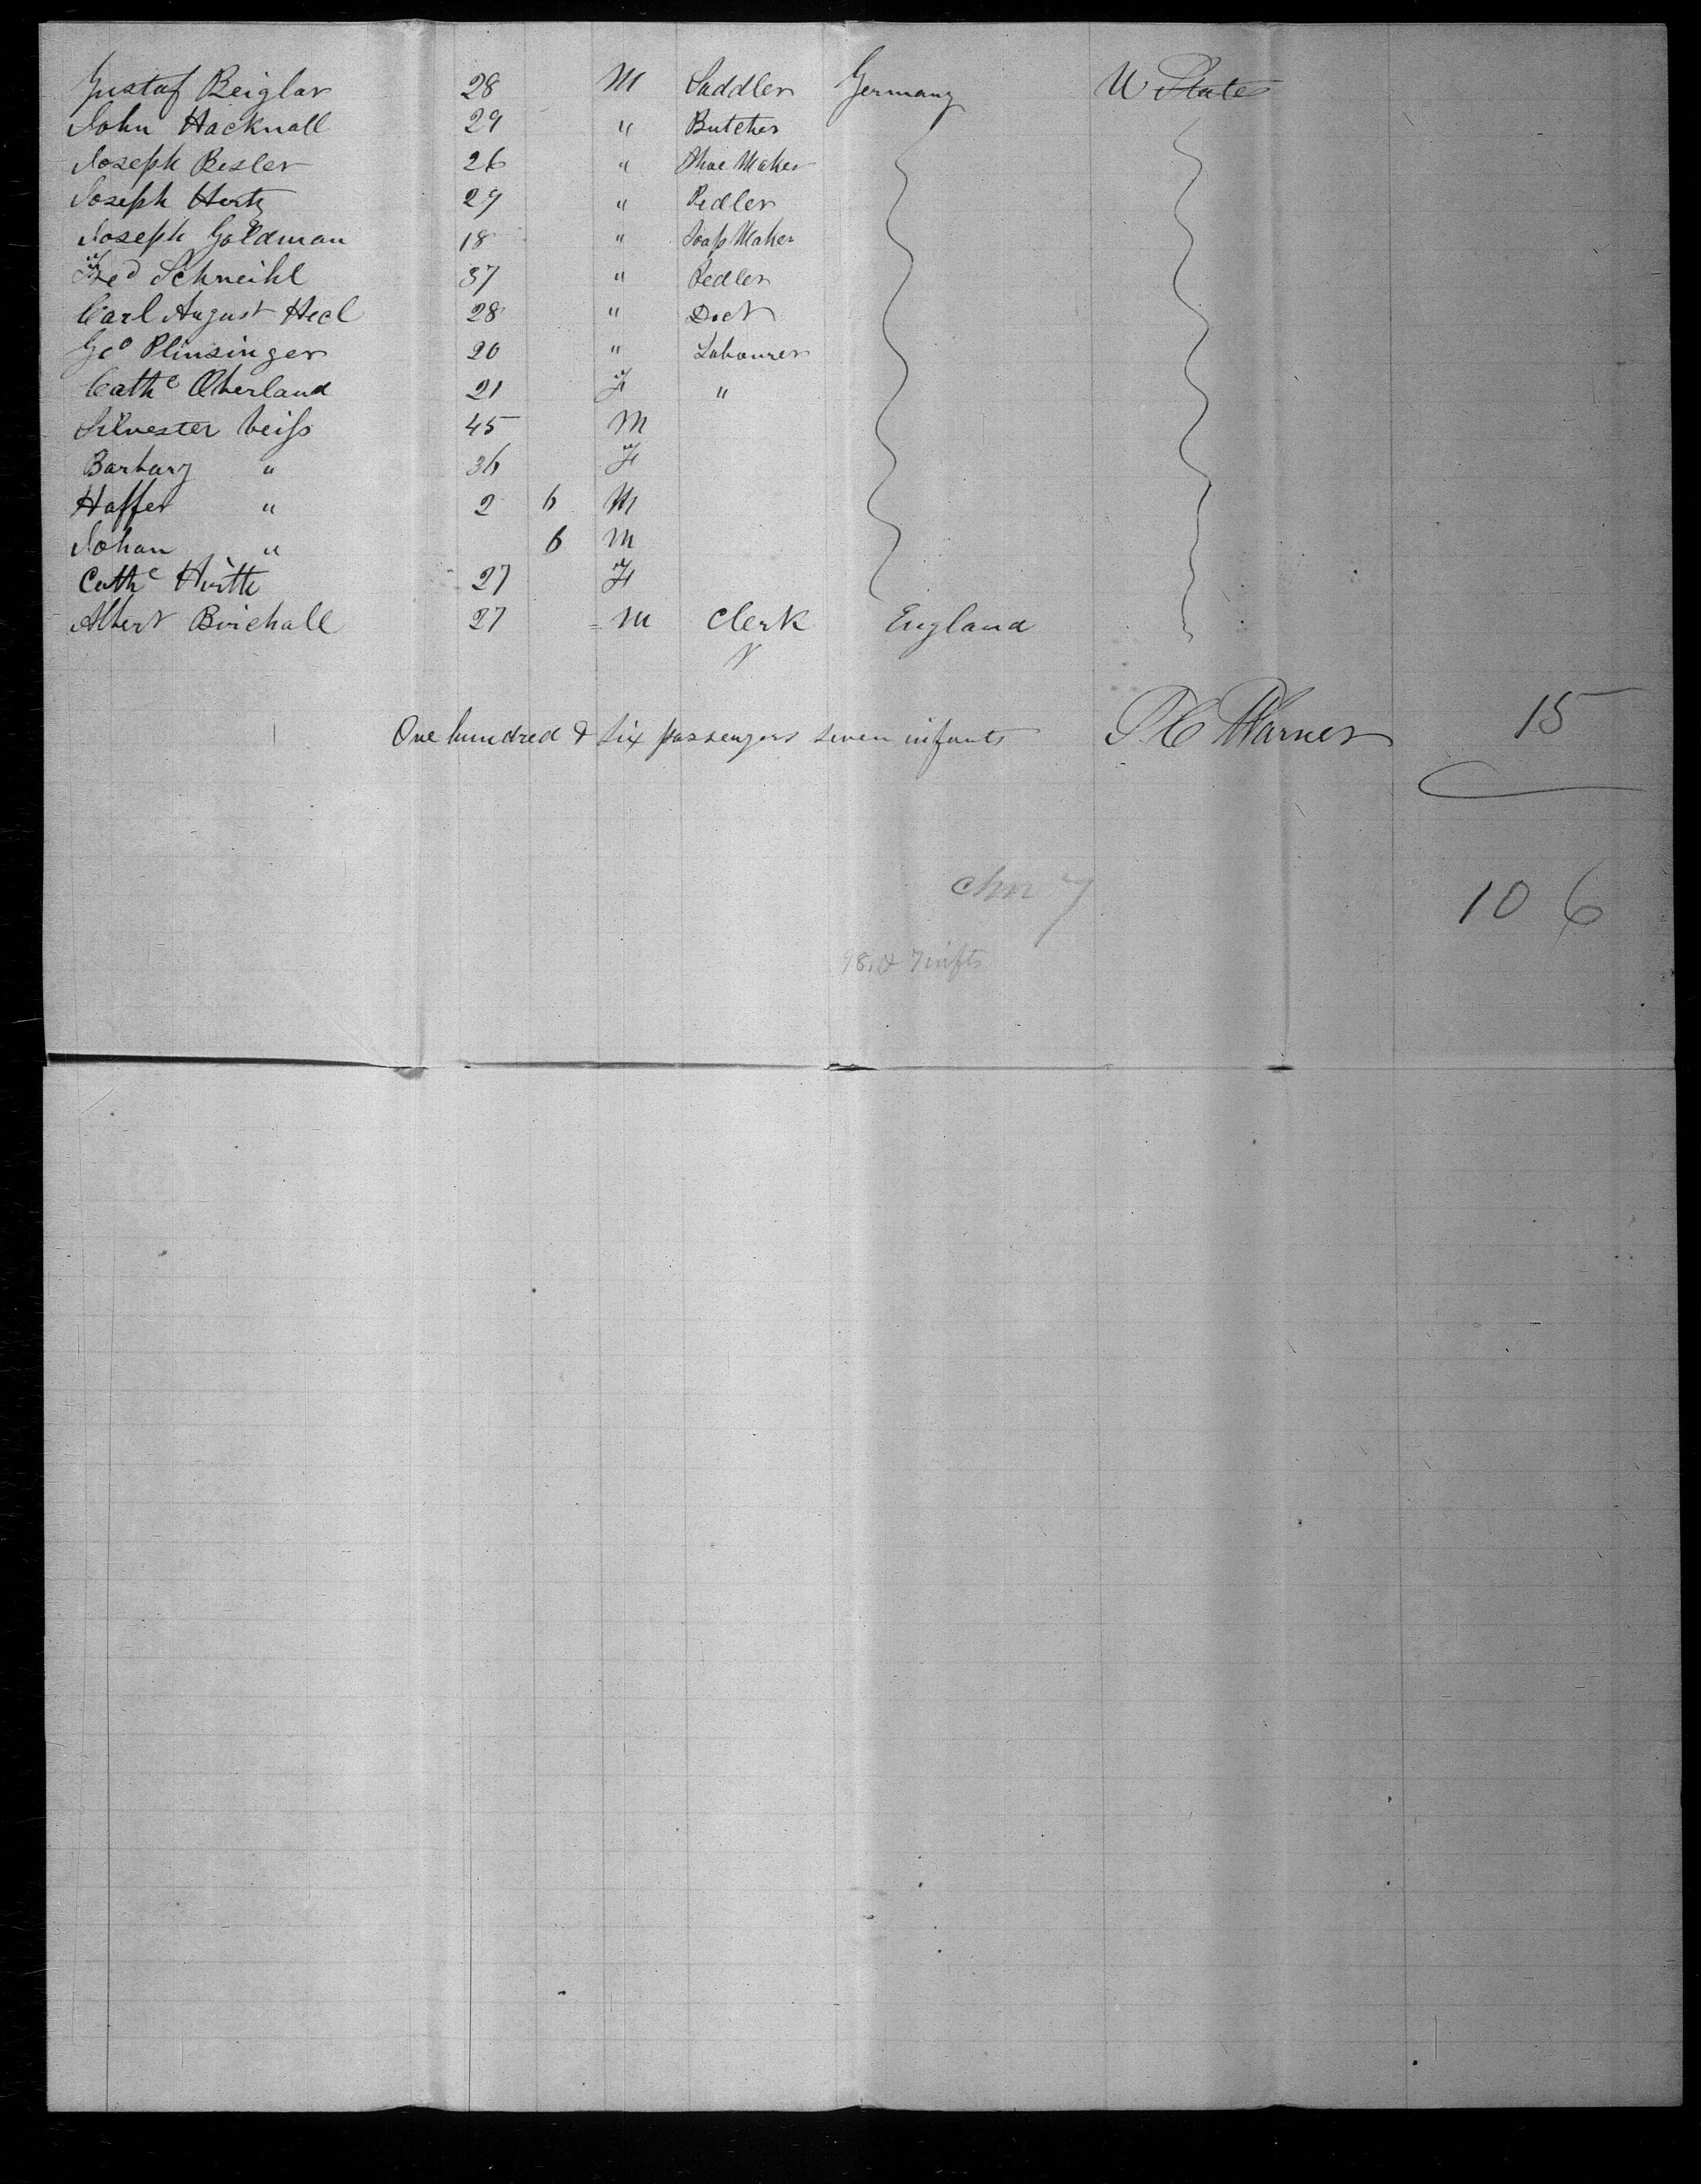 Gustaf Beiglar 28 M Saddler Germany U States
John Hacknall 29 " Butcher
Joseph Besler 26 " Shoe Maker
Joseph Hertz 29 " Pedler
Joseph Goldman 18 " Soap Maker
Fred Schneihl 37 " Pedler
Carl August Hecl 28 " Doct
Geo Plinsinger 20 " Labourer
Cathe Oberland 21 F "
Silvester Weiss 45 M
Barbary " 36 F
Haffer " 2 6 M
Johan " 6 M
Cathe Hirth 27 F
Albert Birchall 27 M Clerk England
One hundred & six passengers seven infants P C Warner 15
chn 7
10 6
98. & 7 infts